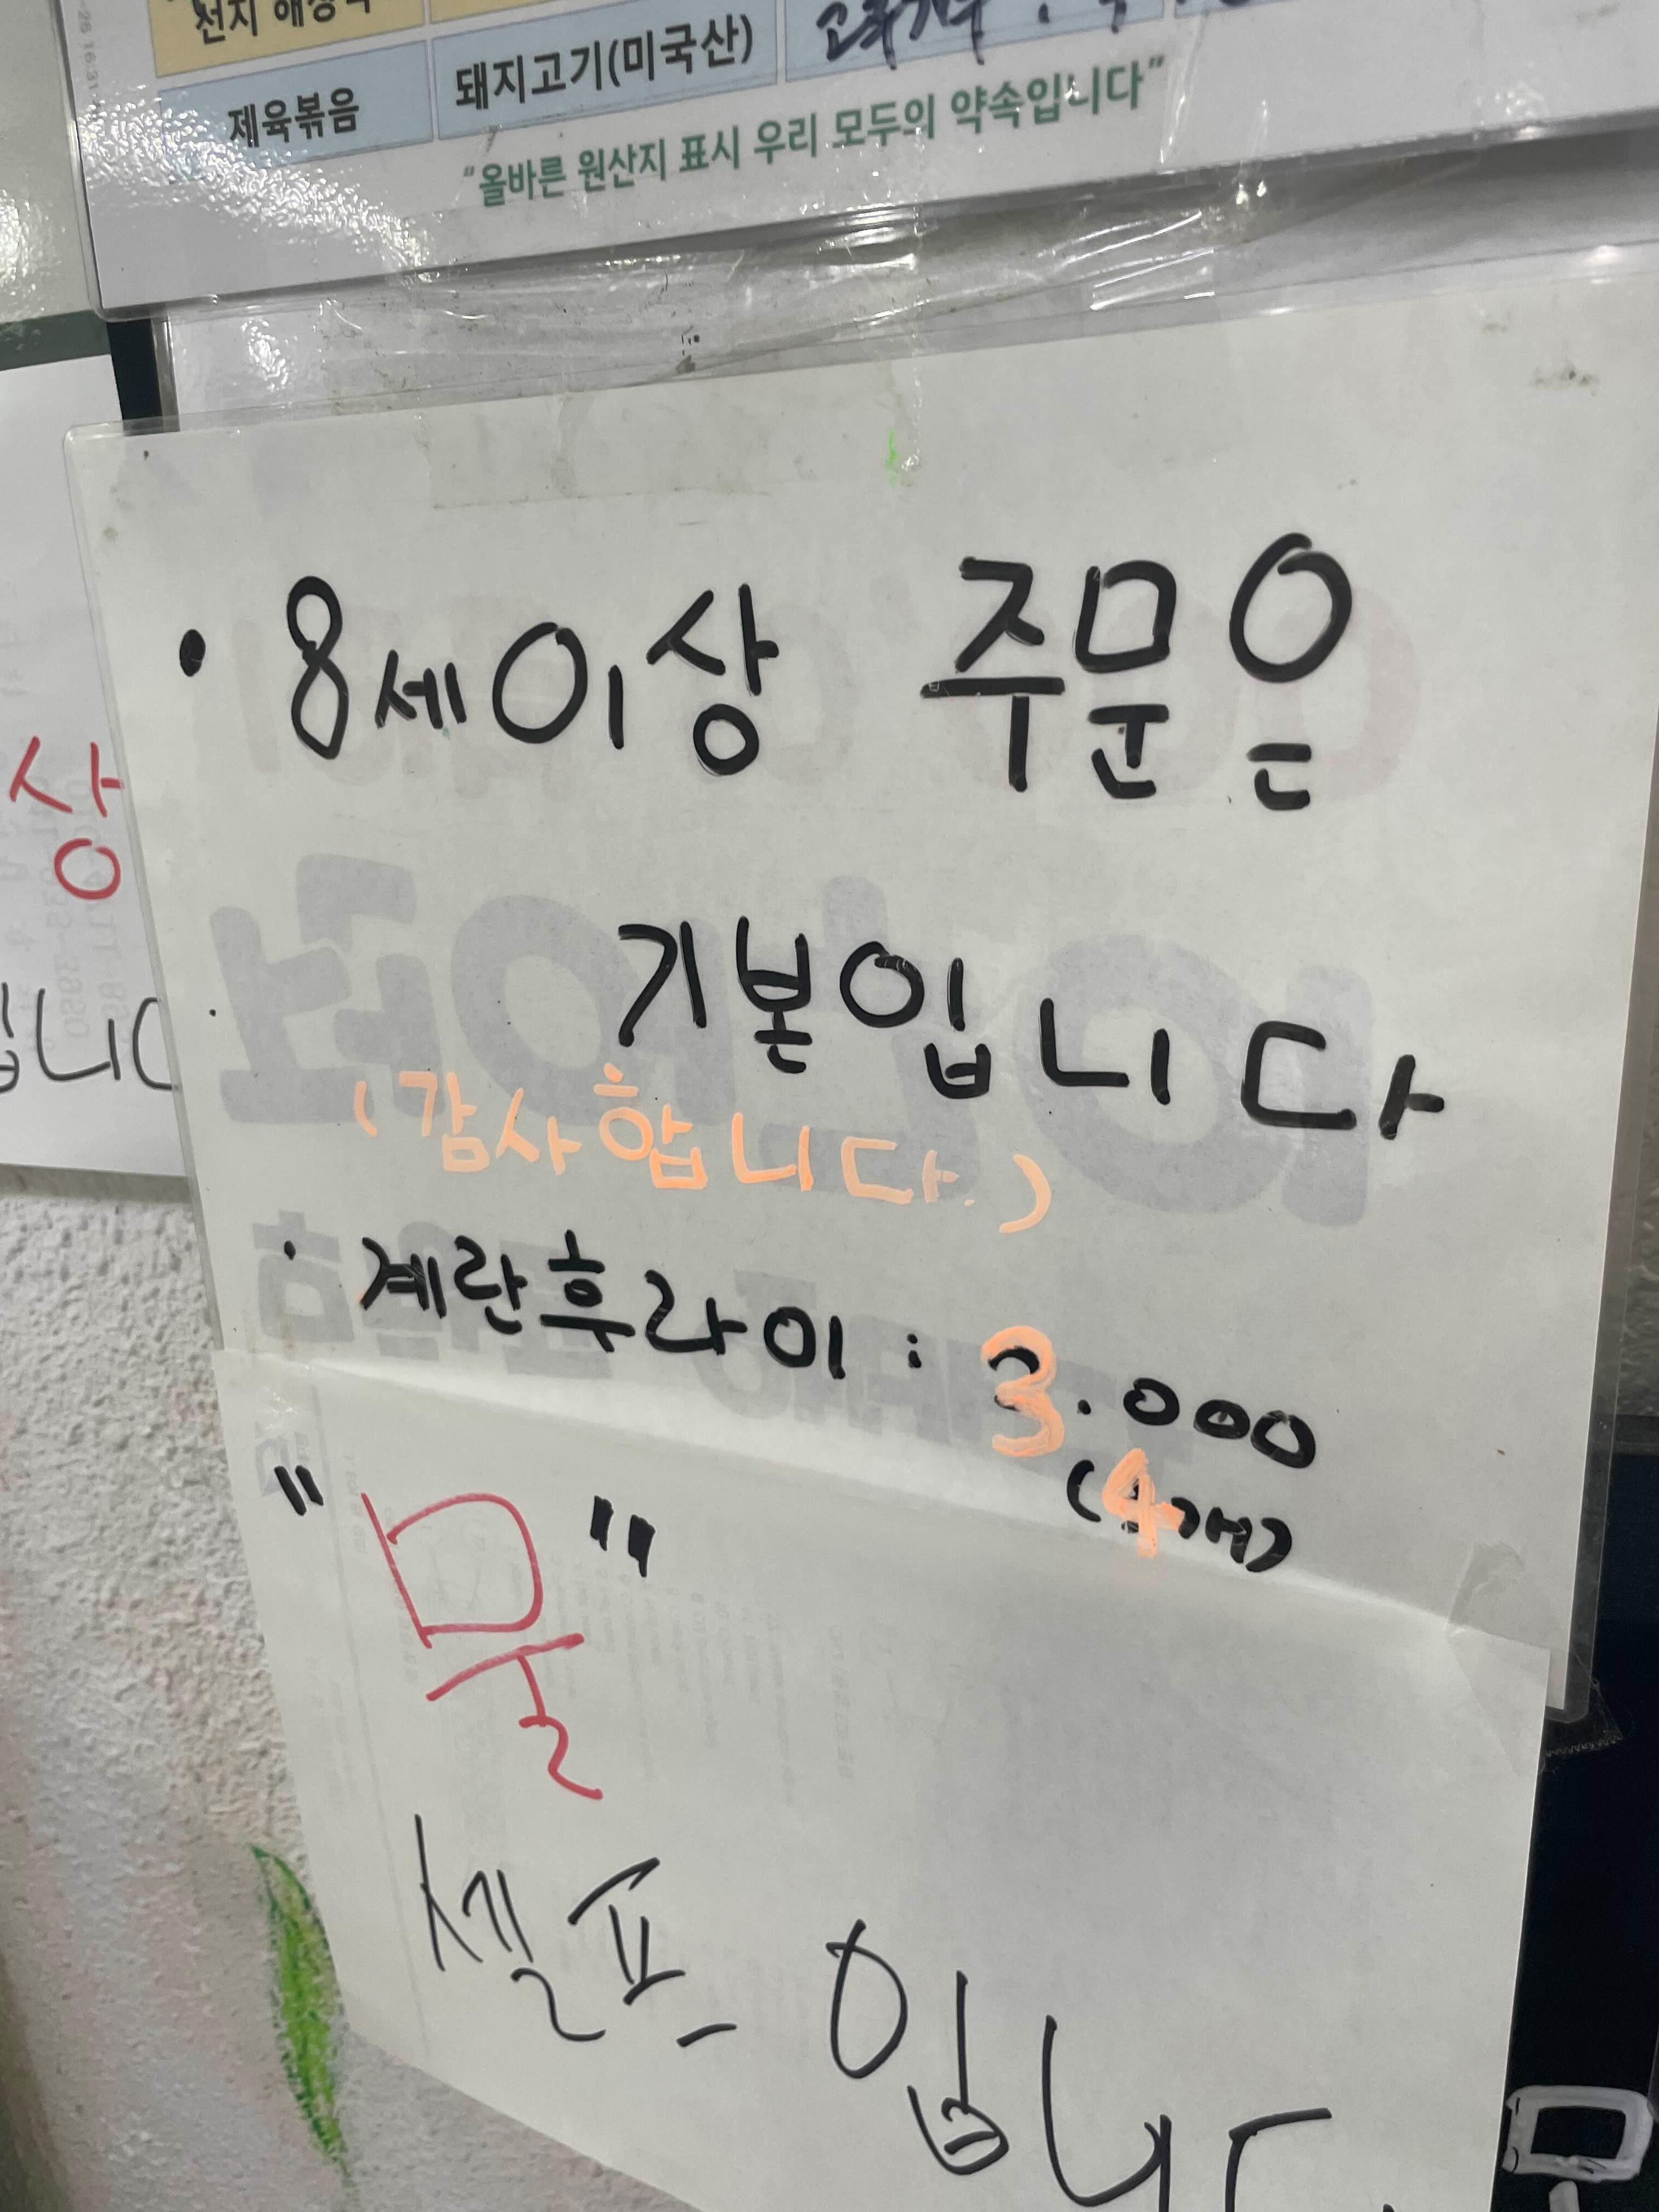 선지 해장국
제육볶음 돼지고기(미국산)
"올바른 원산지 표시 우리 모두의 약속입니다"
상
입니다
· 8세이상 주문은
기본입니다
(감사합니다.)
· 계란후라이 : 3.000
(4개)
"물"
셀프입니다